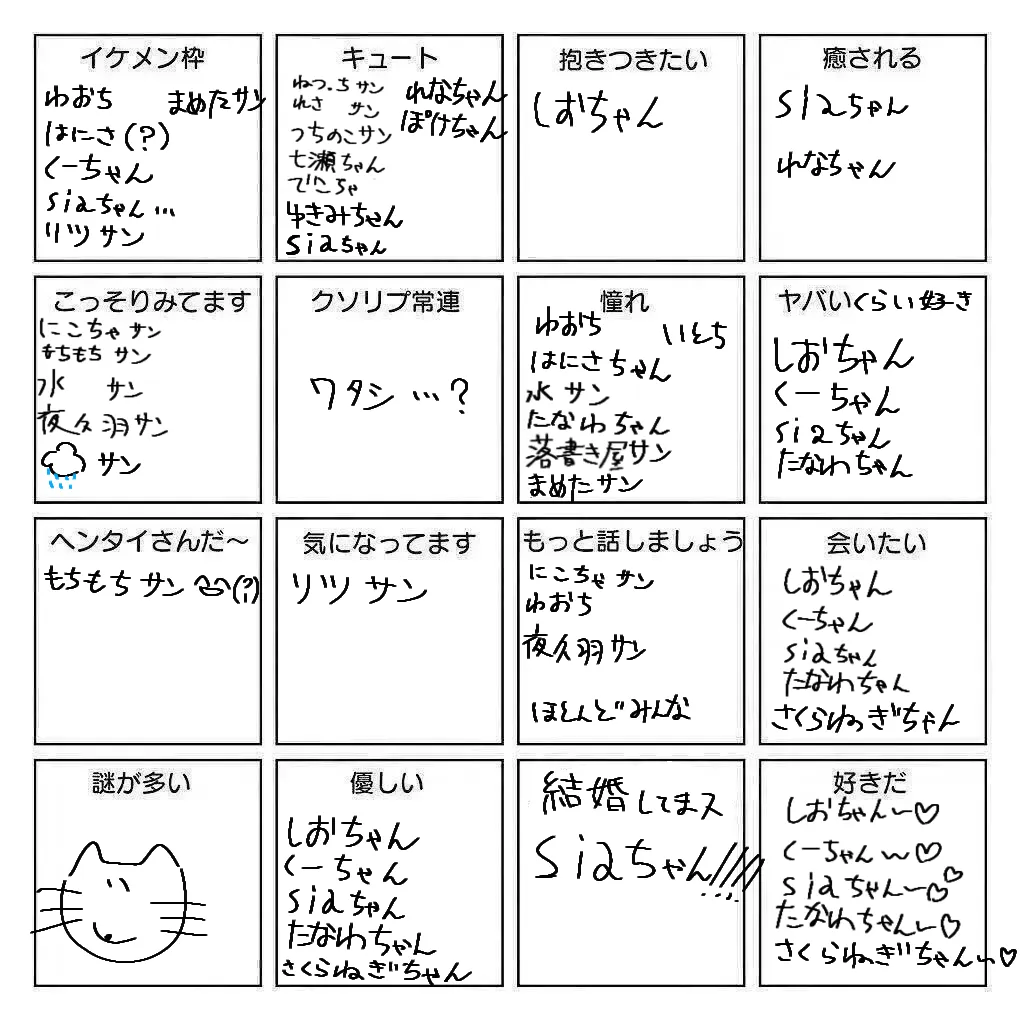 イケメン枠
わおち
まめたサン
はにさ(?)
くーちゃん
siaちゃん…
リツ サン
キュート
ねっ.ち サン
れさ サン
つちのこサン
七瀬ちゃん
でこちゃ
ゆきみちゃん
siaちゃん
れなちゃん
ぽけちゃん
抱きつきたい
しおちゃん
癒される
siaちゃん
れなちゃん
こっそりみてます
にこちゃ サン
もちもち サン
水 サン
夜久羽サン
サン
クソリプ常連
ワタシ…?
憧れ
わおち
いとち
はにさちゃん
水 サン
たなわちゃん
落書き屋サン
まめたサン
ヤバいくらい好き
しおちゃん
くーちゃん
siaちゃん
たなわちゃん
ヘンタイさんだ～
もちもち サン (?)
気になってます
リツ サン
もっと話しましょう
にこちゃ サン
わおち
夜久羽サン
ほとんどみんな
会いたい
しおちゃん
くーちゃん
siaちゃん
たなわちゃん
さくらねぎちゃん
謎が多い
優しい
しおちゃん
くーちゃん
siaちゃん
たなわちゃん
さくらねぎちゃん
結婚してまス
siaちゃん!!!!
好きだ
しおちゃん〜♡
くーちゃん〜♡
siaちゃん〜♡♡
たなわちゃん〜♡
さくらねぎちゃん〜♡